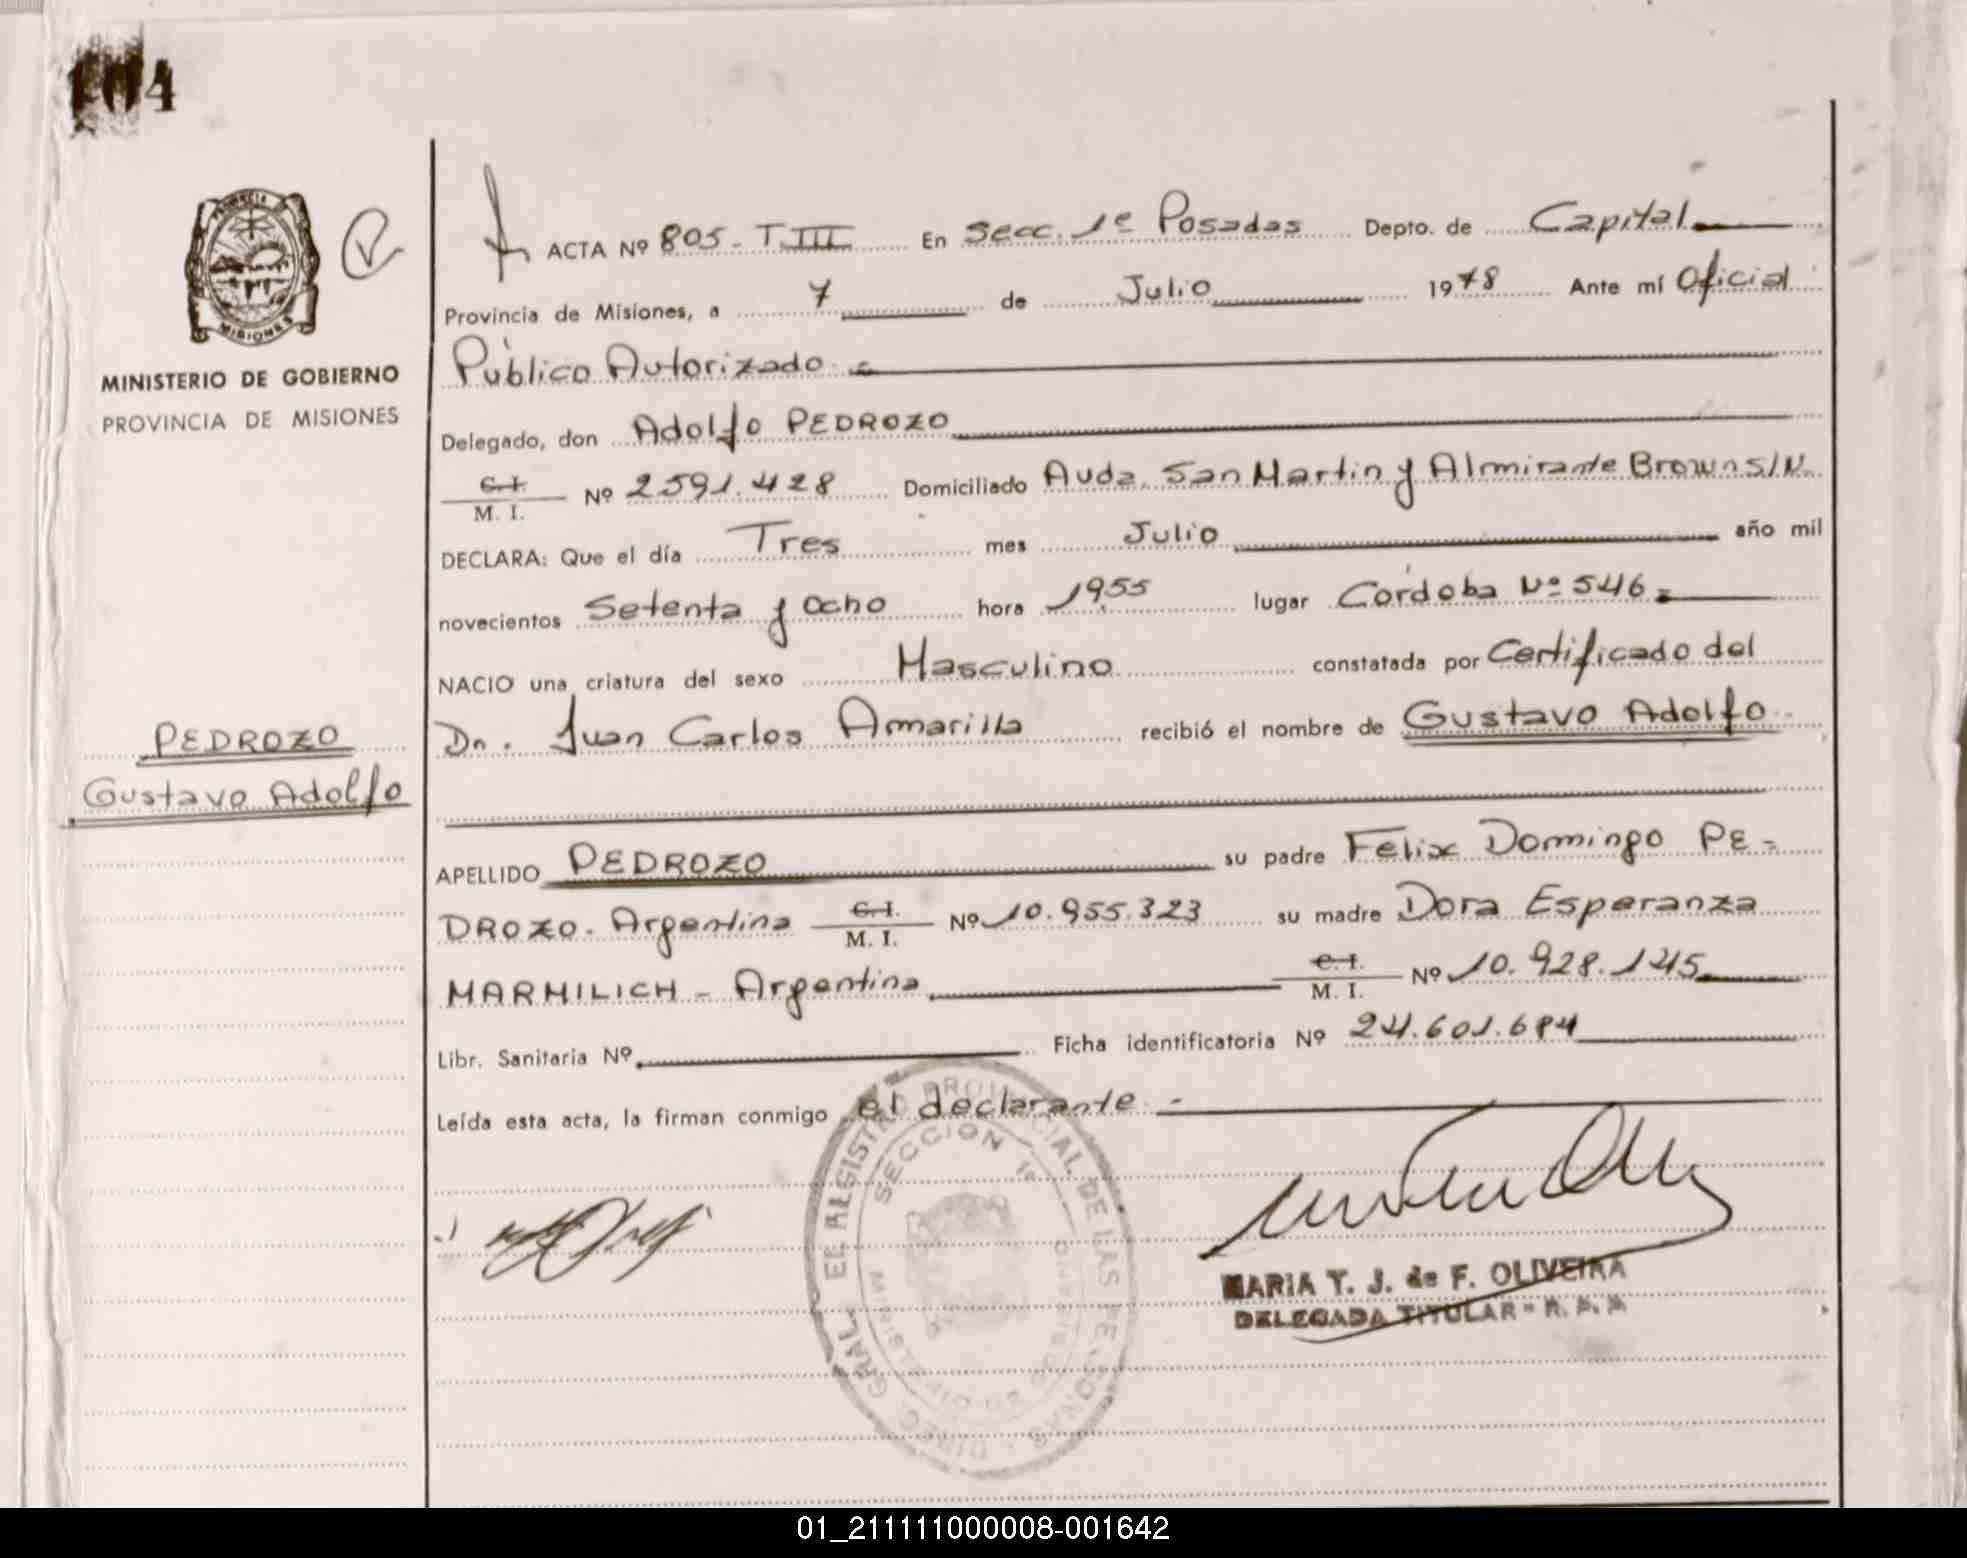 104
ACTA Nº 805 - T. III En Secc. 1ª Posadas Depto. de Capital
Provincia de Misiones, a 7 de Julio 1978 Ante mí Oficial
Público Autorizado
MINISTERIO DE GOBIERNO
PROVINCIA DE MISIONES
MISIONES
Delegado, don Adolfo PEDROZO
C.I. / M. I. Nº 2591.428 Domiciliado Avda. San Martin y Almirante Brown S/N.
DECLARA: Que el día Tres mes Julio año mil
novecientos Setenta y Ocho hora 1955 lugar Córdoba Nº 546
NACIO una criatura del sexo Masculino constatada por Certificado del
Dr. Juan Carlos Amarilla recibió el nombre de Gustavo Adolfo
PEDROZO
Gustavo Adolfo
APELLIDO PEDROZO su padre Felix Domingo PE-
DROZO. Argentina C.I. / M. I. Nº 10.955.323 su madre Dora Esperanza
MARMILICH - Argentina C.I. / M. I. Nº 10.928.145
Libr. Sanitaria Nº Ficha identificatoria Nº 24.601.684
Leída esta acta, la firman conmigo el declarante -
SECCION 1ª
MARIA T. J. de F. OLIVEIRA
DELEGADA TITULAR
01_211111000008-001642